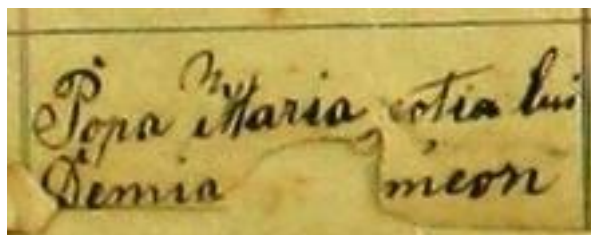 Popa Maria sotia lui
Demia meon